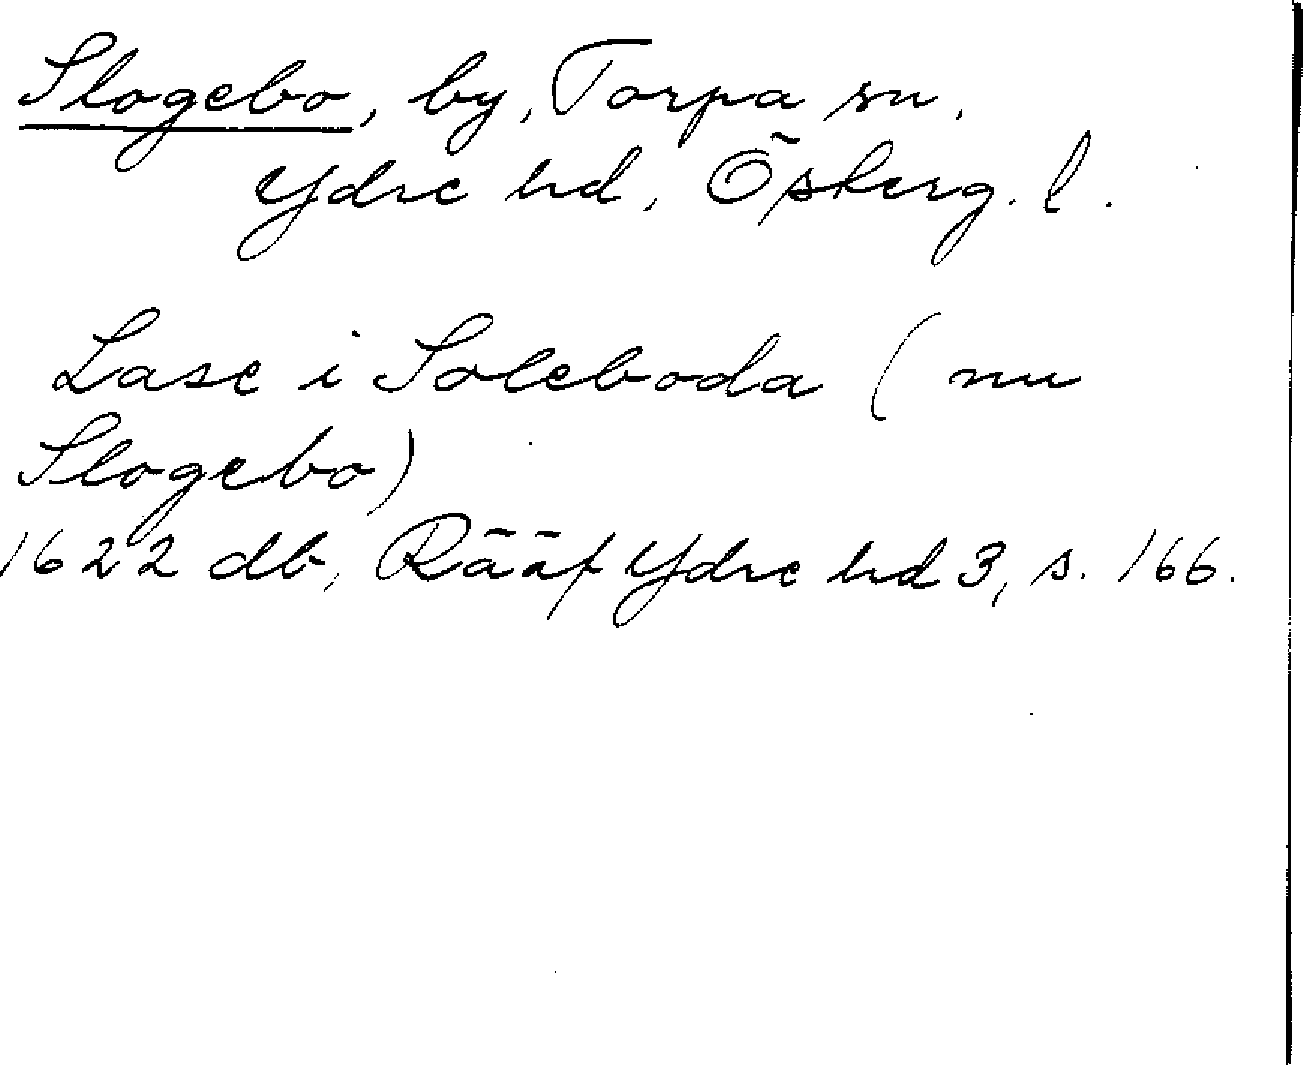 Slogebo, by, Torpa sn.
Ydre hd, Österg. l.
Lase i Soleboda (nu
Slogebo)
1622 db, Rääf Ydre hd 3, s. 166.